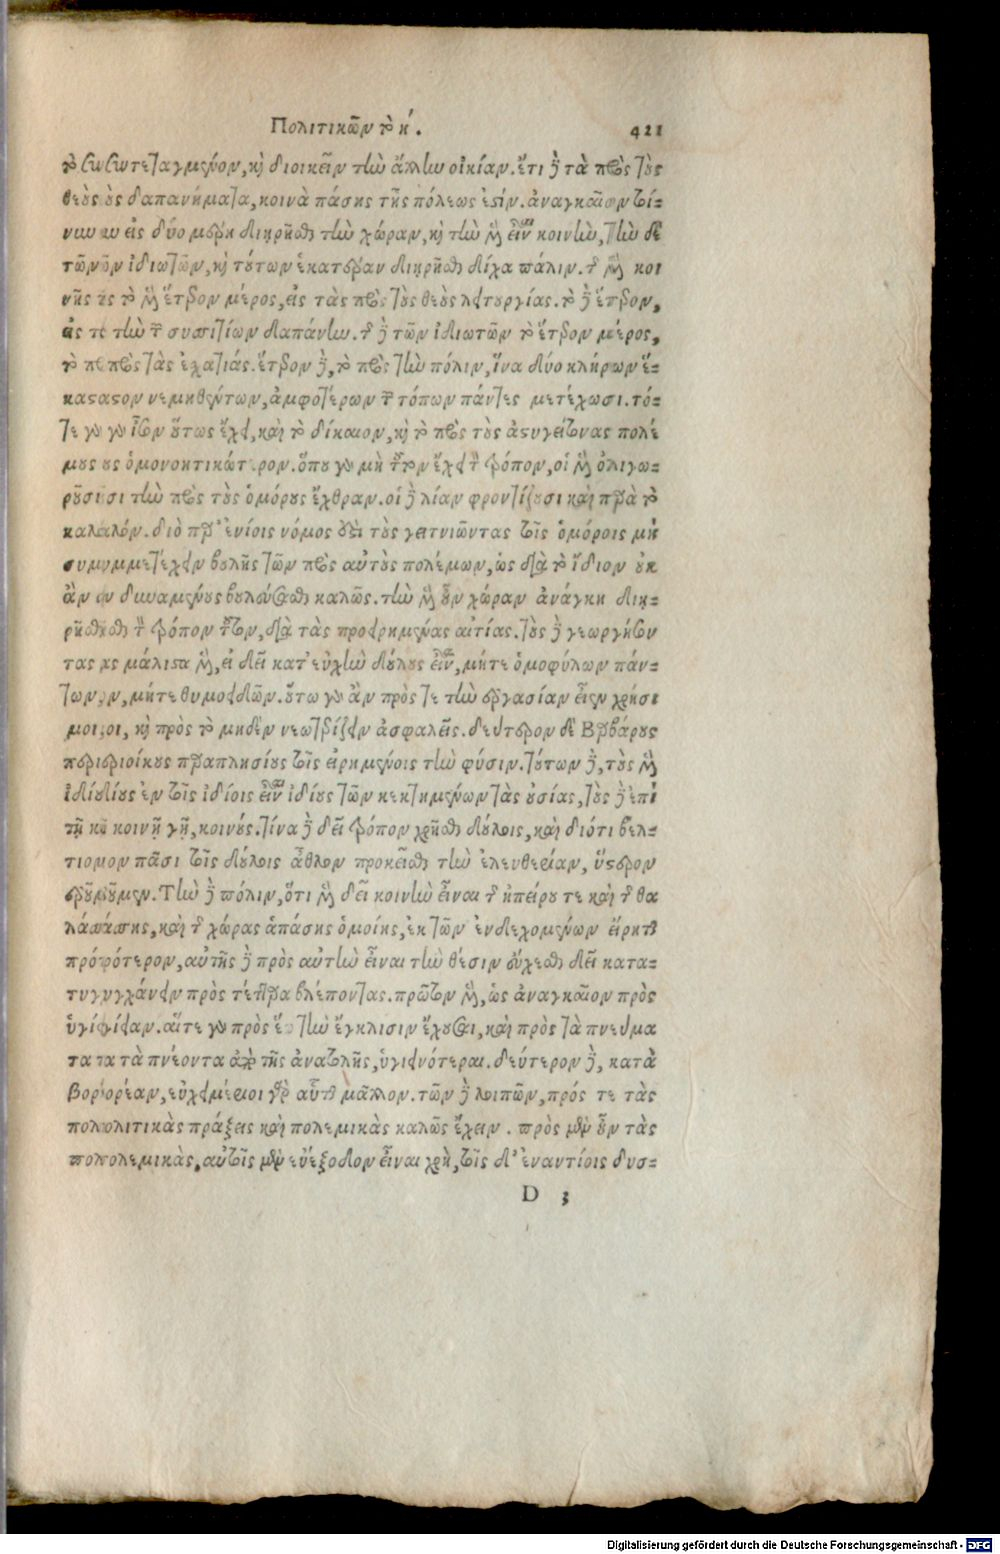 Πολιτικῶν τὸ κ́. 421
τὸ συντεταγμένον, καὶ διοικεῖν τὴν ἄλλην οἰκίαν. ἔτι δὲ τὰ πρὸς τοὺς
θεοὺς δαπανήματα, κοινὰ πάσης τῆς πόλεως ἐστίν. ἀναγκαῖον τοί-
νυν εἰς δύο μέρη διῃρῆσθαι τὴν χώραν, καὶ τὴν μὲν εἶναι κοινὴν, τὴν δὲ
τῶν ἰδιωτῶν, καὶ τούτων ἑκατέραν διῃρῆσθαι δίχα πάλιν. τῆς μὲν κοι
νῆς τὸ μὲν ἕτερον μέρος, εἰς τὰς πρὸς τοὺς θεοὺς λειτουργίας. τὸ δὲ ἕτερον,
εἰς τὴν τῶν συσσιτίων δαπάνην. τῆς δὲ τῶν ἰδιωτῶν τὸ ἕτερον μέρος,
τὸ πρὸς τὰς ἐσχατιάς. ἕτερον δὲ, τὸ πρὸς τὴν πόλιν, ἵνα δύο κλήρων ἑ-
κάστον νεμηθέντων, ἀμφοτέρων τῶν τόπων πάντες μετέχωσι. τό-
τε γὰρ ἴσον οὕτως ἔχει, καὶ τὸ δίκαιον, καὶ τὸ πρὸς τοὺς ἀστυγείτονας πολέ
μους ὁμονοητικώτερον. ὅπου γὰρ μὴ τοῦτον ἔχει τὸν τρόπον, οἱ μὲν ὀλιγω-
ροῦσι τὴν πρὸς τοὺς ὁμόρους ἔχθραν. οἱ δὲ λίαν φροντίζουσι καὶ παρὰ τὸ
καλόν. διὸ παρ' ἐνίοις νόμος ἐστὶ τοὺς γειτνιῶντας τοῖς ὁμόροις μὴ
συμμετέχειν βουλῆς τῶν πρὸς αὐτοὺς πολέμων, ὡς διὰ τὸ ἴδιον οὐκ
ἂν δυναμένους βουλεύσασθαι καλῶς. τὴν μὲν οὖν χώραν ἀνάγκη διῃ-
ρῆσθαι τὸν τρόπον τοῦτον, διὰ τὰς προειρημένας αἰτίας. τοὺς δὲ γεωργήσον
τας μάλιστα μὲν, εἰ δεῖ κατ' εὐχὴν δούλους εἶναι, μήτε ὁμοφύλων πάν-
των, μήτε θυμοειδῶν. οὕτω γὰρ ἂν πρὸς τε τὴν ἐργασίαν εἶεν χρήσι
μοι, καὶ πρὸς τὸ μηδὲν νεωτερίζειν ἀσφαλεῖς. δεύτερον δὲ Βαρβάρους
περιοίκους παραπλησίους τοῖς εἰρημένοις τὴν φύσιν. τούτων δὲ, τοὺς μὲν
ἰδίους ἐν τοῖς ἰδίοις εἶναι ἰδίους τῶν κεκτημένων τὰς οὐσίας, τοὺς δὲ ἐπὶ
τῇ κοινῇ γῇ, κοινούς. τίνα δὲ δεῖ τρόπον χρῆσθαι δούλοις, καὶ διότι βέλ-
τιον πᾶσι τοῖς δούλοις ἆθλον προκεῖσθαι τὴν ἐλευθερίαν, ὕστερον
ἐροῦμεν. Τὴν δὲ πόλιν, ὅτι μὲν δεῖ κοινὴν εἶναι τῆς ἠπείρου τε καὶ τῆς θα
λάττης, καὶ τῆς χώρας ἁπάσης ὁμοίης, ἐκ τῶν ἐνδεχομένων εἴρηται
πρότερον, αὐτῆς δὲ πρὸς αὐτὴν εἶναι τὴν θέσιν εὔχεσθαι δεῖ κατα-
τυγχάνειν πρὸς τέτταρα βλέποντας. πρῶτον μὲν, ὡς ἀναγκαῖον πρὸς
ὑγίειαν. αἵτε γὰρ πρὸς ἕω τὴν ἔγκλισιν ἔχουσαι, καὶ πρὸς τὰ πνεύμα
τα τὰ πνέοντα ἀπὸ τῆς ἀνατολῆς, ὑγιεινότεραι. δεύτερον δὲ, κατὰ
βορέαν, εὐχείμεροι γὰρ αὗται μᾶλλον. τῶν δὲ λοιπῶν, πρός τε τὰς
πολιτικὰς πράξεις καὶ πολεμικὰς καλῶς ἔχειν. πρὸς μὲν οὖν τὰς
πολεμικὰς, αὐτοῖς μὲν εὐέξοδον εἶναι χρὴ, τοῖς δ' ἐναντίοις δυσ-
D 3
Digitalisierung gefördert durch die Deutsche Forschungsgemeinschaft - DFG